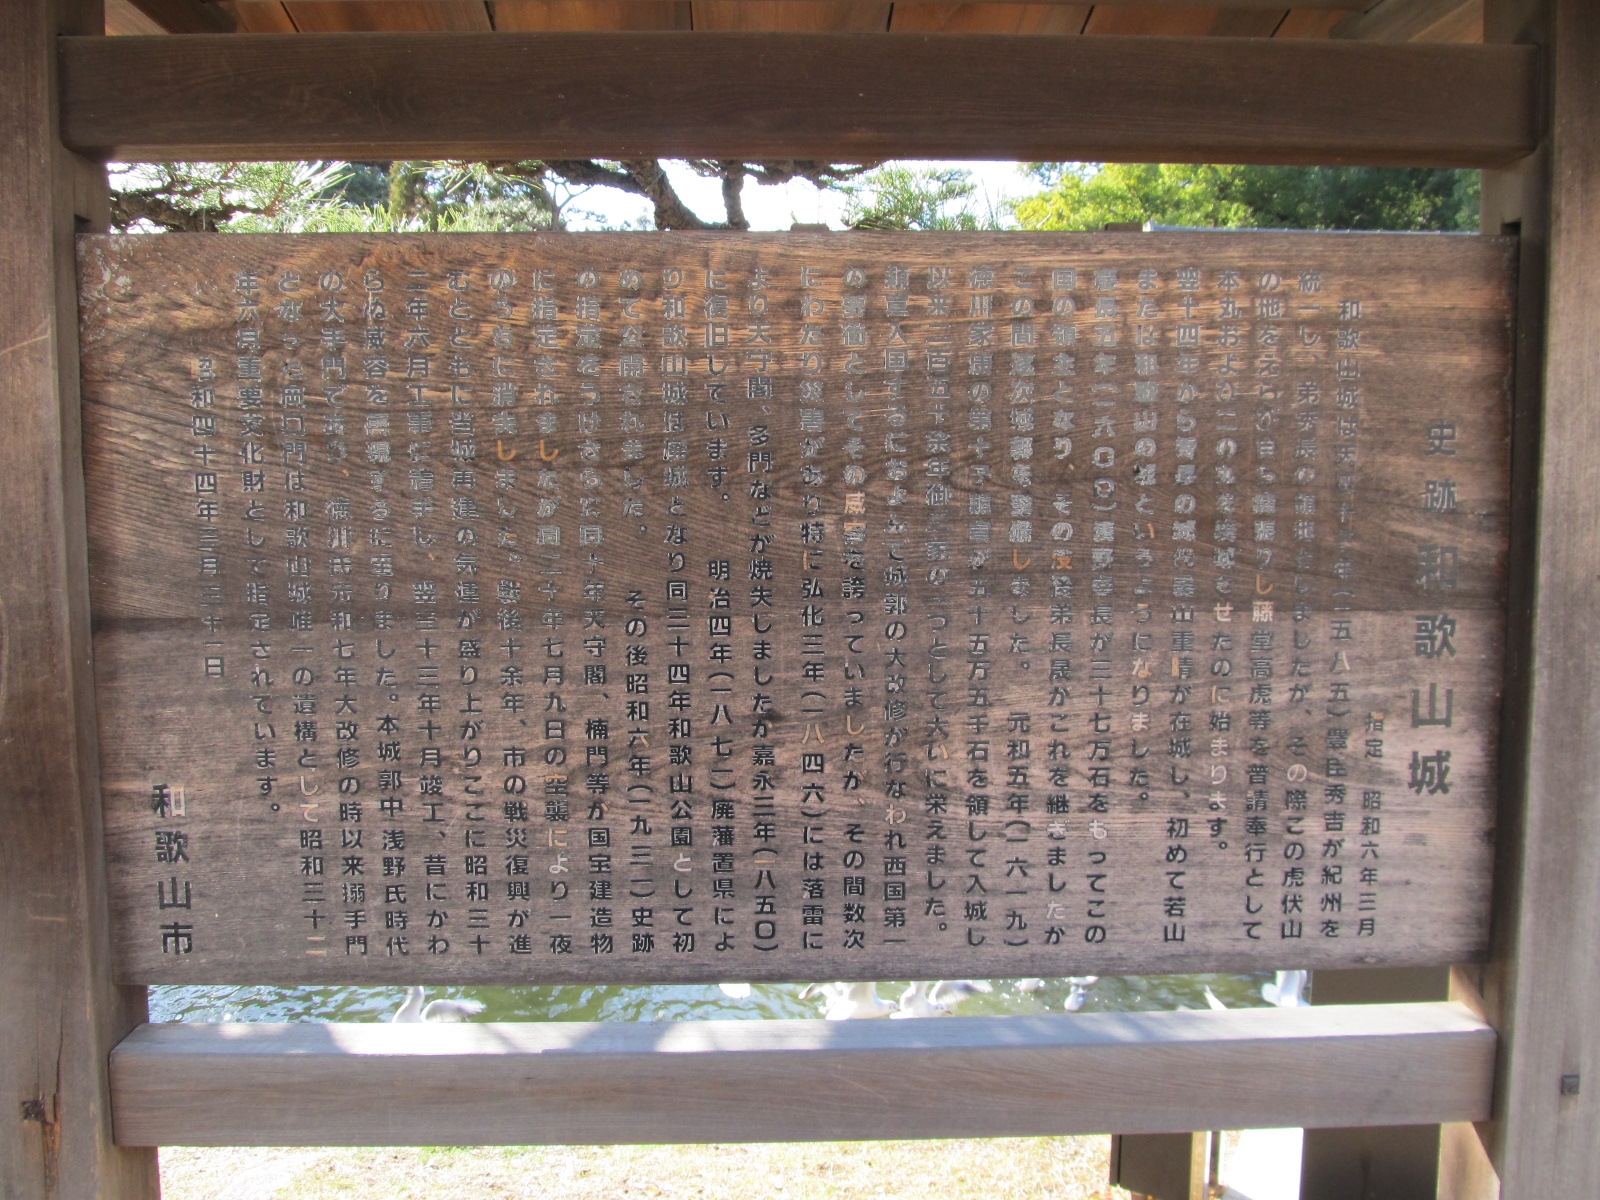 史跡 和歌山城
指定 昭和六年三月
和歌山城は天正十三年(一五八五)豊臣秀吉が紀州を
統一し、弟秀長の領地としましたが、その際この虎伏山
の地をえらび自ら縄張りし藤堂高虎等を普請奉行として
本丸および二の丸を築城させたのに始まります。
翌十四年から秀長の城代桑山重晴が在城し、初めて若山
または和歌山の城というようになりました。
慶長五年(一六〇〇)浅野幸長が三十七万石をもってこの
国の領主となり、その没後弟長晟がこれを継ぎましたが
この間逐次城郭を築備しました。 元和五年(一六一九)
徳川家康の第十子頼宣が五十五万五千石を領して入城し
以来二百五十余年御三家の一つとして大いに栄えました。
頼宣入国するにおよんで城郭の大改修が行なわれ西国第一
の要衝としてその威容を誇っていましたが、その間数次
にわたり災害があり特に弘化三年(一八四六)には落雷に
より天守閣、多門などが焼失しましたが嘉永三年(一八五〇)
に復旧しています。 明治四年(一八七一)廃藩置県によ
り和歌山城は廃城となり同三十四年和歌山公園として初
めて公開されました。 その後昭和六年(一九三一)史跡
の指定をうけさらに同十年天守閣、楠門等が国宝建造物
に指定されましたが同二十年七月九日の空襲により一夜
のうちに消失しました。戦後十余年、市の戦災復興が進
むとともに当城再建の気運が盛り上がりここに昭和三十
二年六月工事に着手し、翌三十三年十月竣工、昔にかわ
らぬ威容を再現するに至りました。本城郭中浅野氏時代
の大手門であり、徳川氏元和七年大改修の時以来搦手門
となった岡口門は和歌山城唯一の遺構として昭和三十二
年六月重要文化財として指定されています。
昭和四十四年三月三十一日
和歌山市